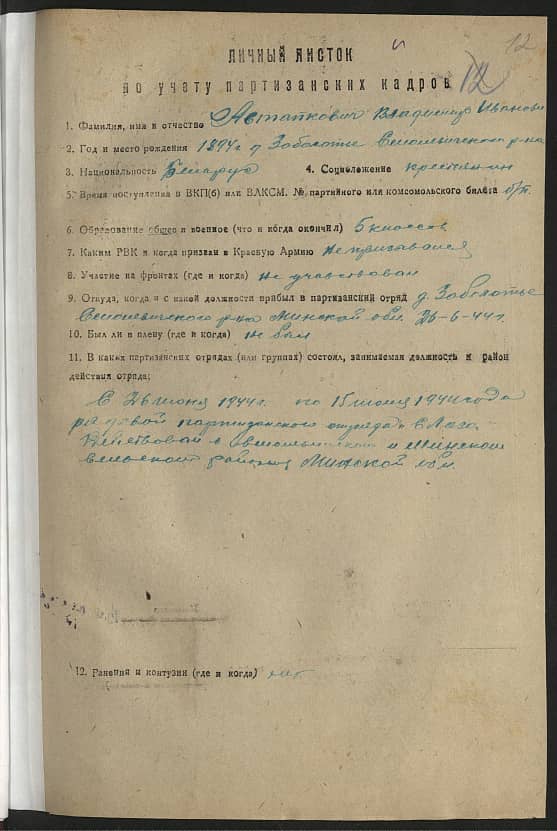 12
ЛИЧНЫЙ ЛИСТОК
по учету партизанских кадров 12
1. Фамилия, имя и отчество Астапкович Владимир Иванович
2. Год и место рождения 1894 г д. Заболотье Смолевичского р-на
3. Национальность Беларус 4. Социоложение крестьянин
5. Время поступления в ВКП(б) или ВЛКСМ. № партийного или комсомольского билета б/п.
6. Образование общее и военное (что и когда окончил) 5 классов
7. Каким РВК и когда призван в Красную Армию не призывался
8. Участие на фронтах (где и когда) не участвовал
9. Откуда, когда и с какой должности прибыл в партизанский отряд д. Заболотье
Смолевичского р-на Минской обл. 26-6-44 г.
10. Был ли в плену (где и когда) не был
11. В каких партизанских отрядах (или группах) состоял, занимаемая должность и район
действия отряда:
С 26 июня 1944 г. по 15 июля 1944 года
рядовой партизанского отряда С. Лазо.
Действовал в Смолевичском и Минском
сельском районах Минской обл.
12. Ранения и контузии (где и когда) нет